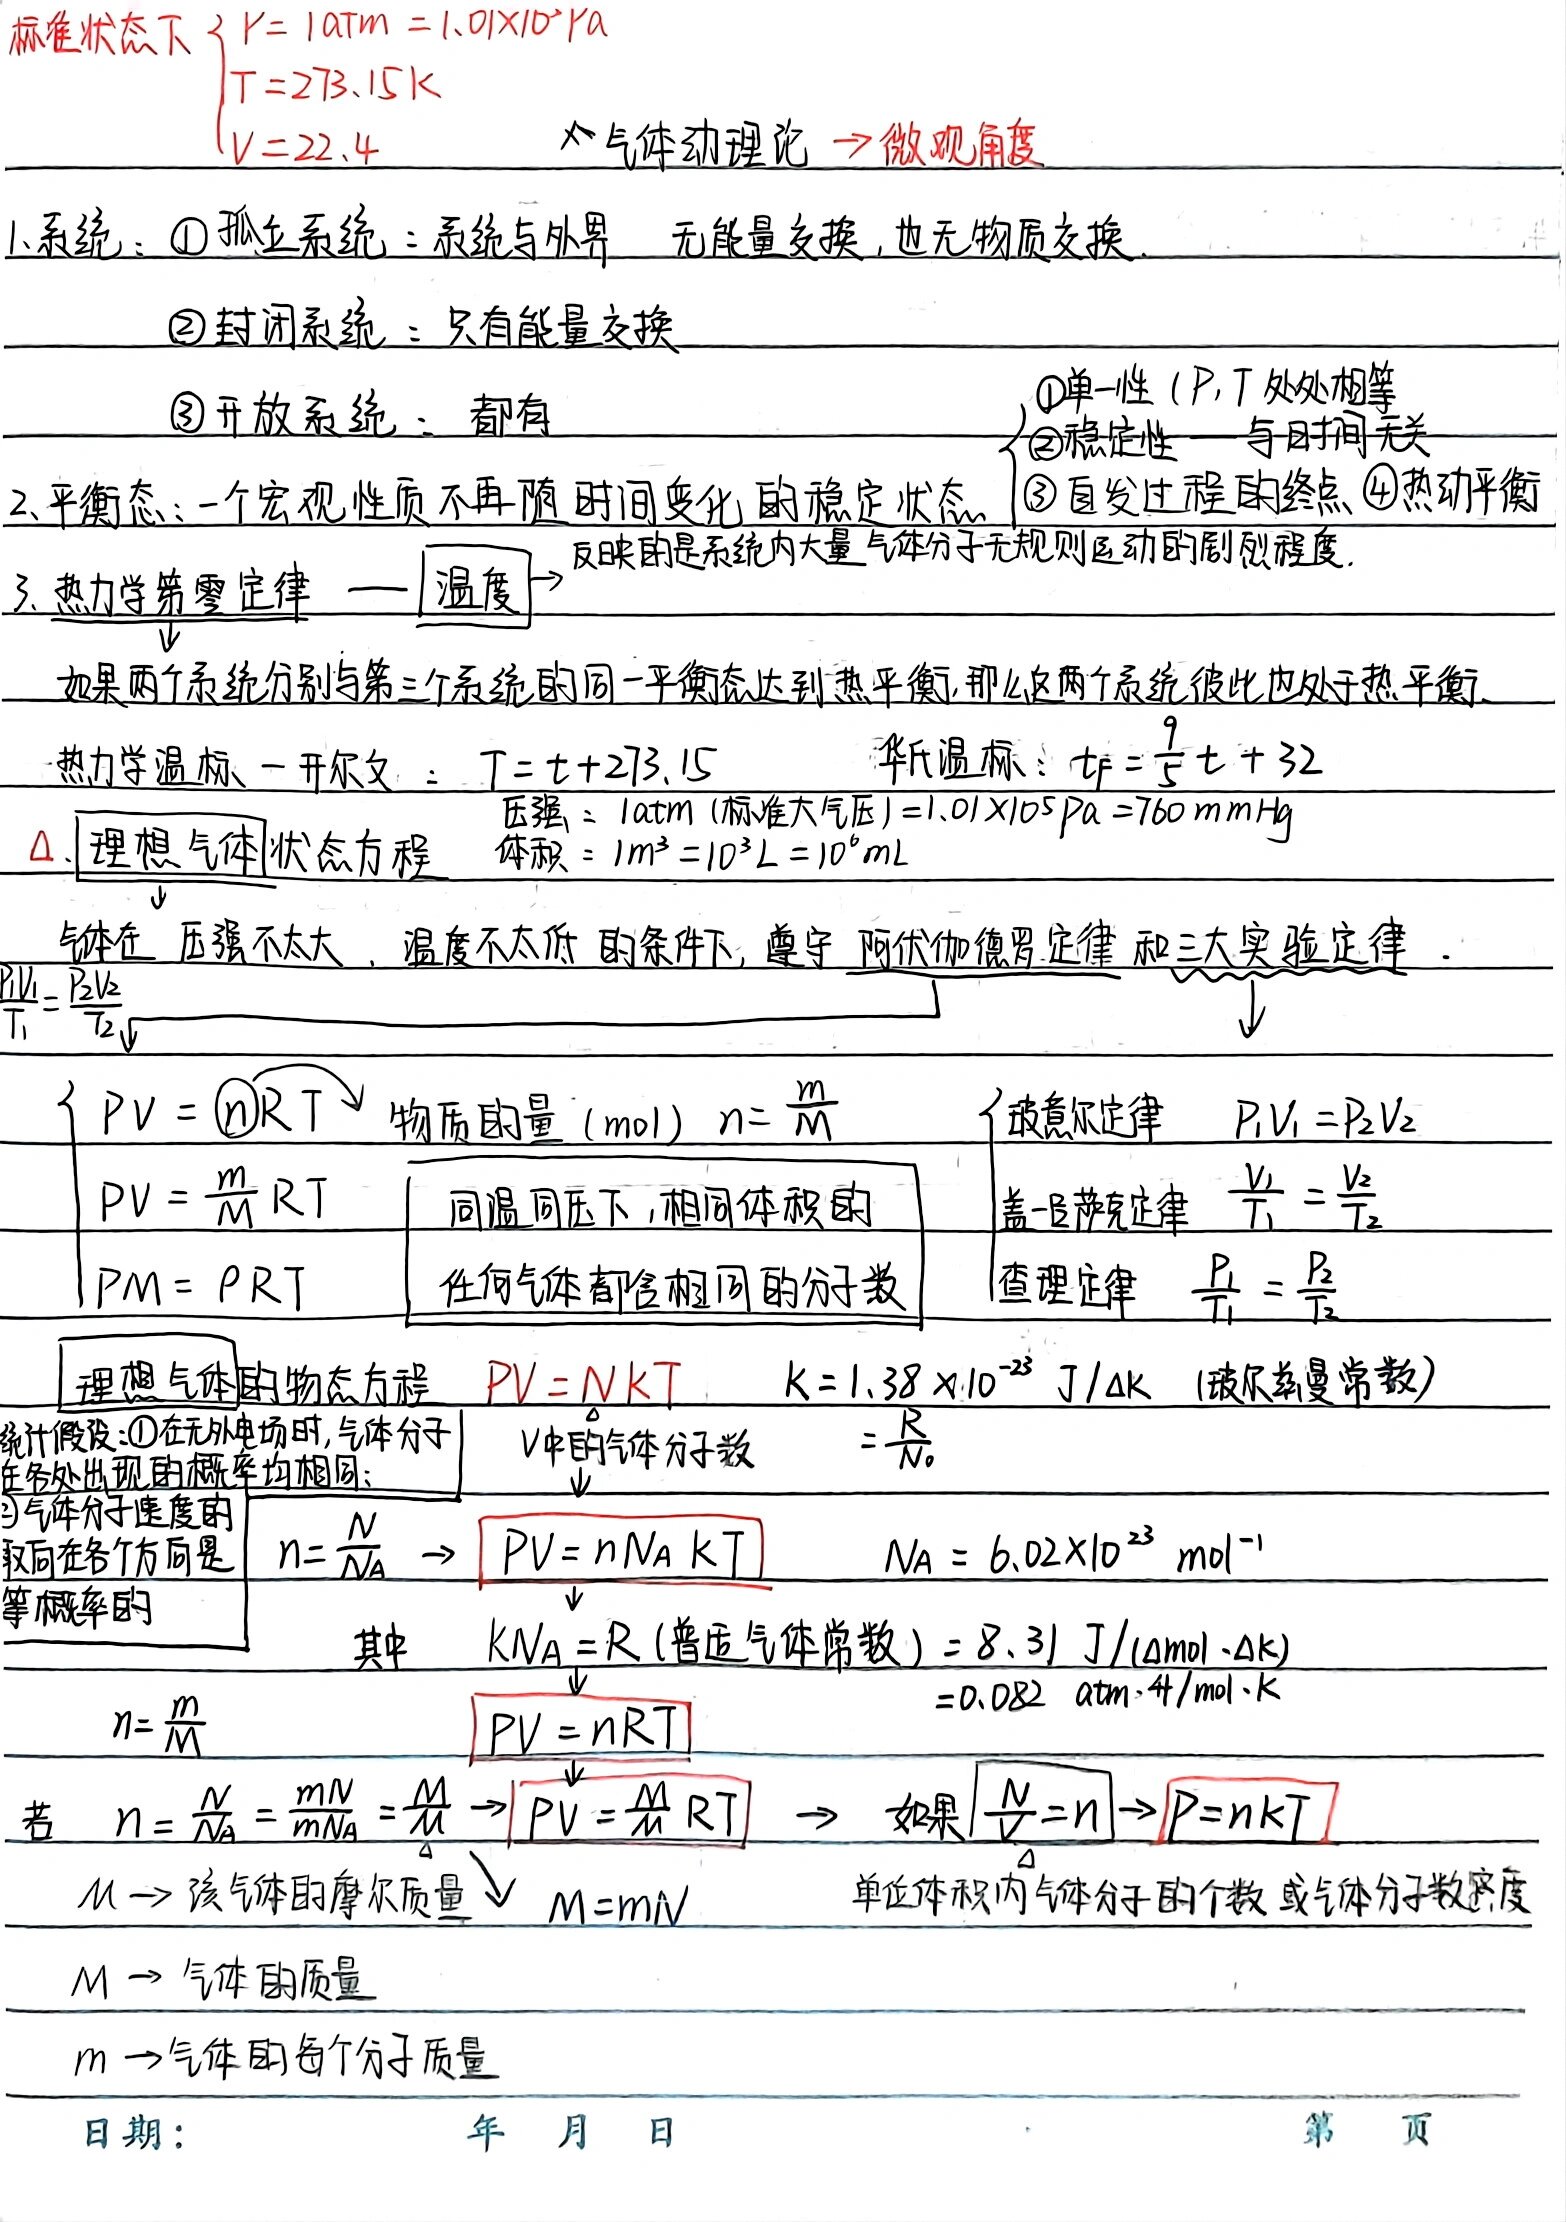 标准状态下 { P = 1atm = 1.01×10⁵Pa
T = 273.15K
V = 22.4
气体动理论 → 微观角度
1、系统：① 孤立系统：系统与外界 无能量交换，也无物质交换.
② 封闭系统：只有能量交换
③ 开放系统：都有
① 单一性（P,T 处处相等
② 稳定性 —— 与时间无关
③ 自发过程的终点 ④ 热动平衡
2、平衡态：一个宏观性质不再随时间变化的稳定状态
反映的是系统内大量气体分子无规则运动的剧烈程度.
3、热力学第零定律 — 温度 →
↓
如果两个系统分别与第三个系统的同一平衡态达到热平衡,那么这两个系统彼此也处于热平衡.
热力学温标 - 开尔文： T = t + 273.15 华氏温标： tF = 9/5 t + 32
压强： 1atm (标准大气压) = 1.01×10⁵Pa = 760mmHg
△. 理想气体 状态方程 体积： 1m³ = 10³L = 10⁶mL
↓
气体在 压强不太大、温度不太低 的条件下, 遵守 阿伏伽德罗定律 和 三大实验定律.
P₁V₁/T₁ = P₂V₂/T₂
PV = nRT 物质的量 (mol) n = m/M
PV = m/M RT
PM = ρRT
同温同压下,相同体积的
任何气体都含相同的分子数
玻意尔定律 P₁V₁ = P₂V₂
盖-吕萨克定律 V₁/T₁ = V₂/T₂
查理定律 P₁/T₁ = P₂/T₂
理想气体的物态方程 PV = NKT K = 1.38×10⁻²³ J/△K (玻尔兹曼常数)
△
V中的气体分子数 = R/N₀
↓
统计假设：① 在无外电场时,气体分子
在各处出现的概率均相同；
② 气体分子速度的
取向在各个方向是
等概率的
n = N/NA → PV = nNA kT NA = 6.02×10²³ mol⁻¹
↓
其中 KNA = R (普适气体常数) = 8.31 J/(△mol·△K)
= 0.082 atm·升/mol·K
n = m/M PV = nRT
↓
若 n = N/NA = mN/mNA = M/M → PV = M/M RT → 如果 N/V = n → P = nkT
△ △
M → 该气体的摩尔质量 ↘ M = mN 单位体积内气体分子的个数 或气体分子数密度
M → 气体的质量
m → 气体的每个分子质量
日期： 年 月 日 第 页